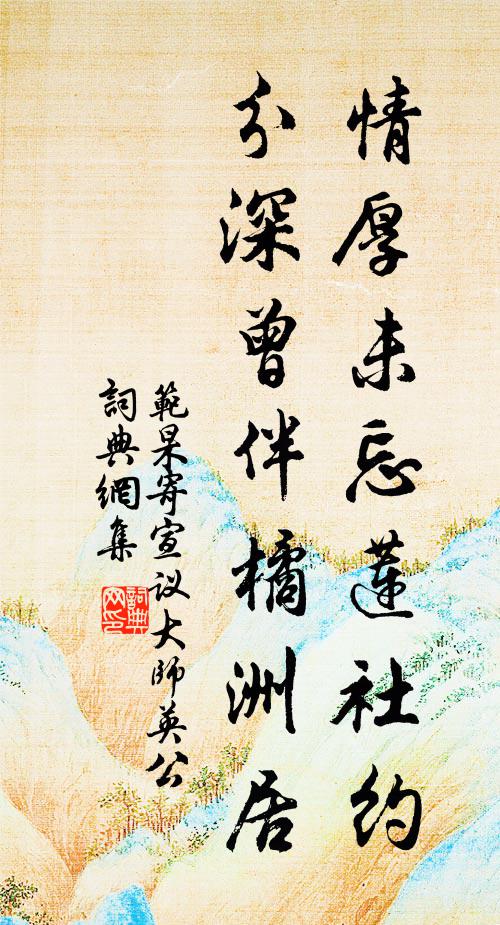 情厚未忘蓮社約
分深曾伴橘洲居
範杲寄宣议大師英公
詞典網集
詞典
网印